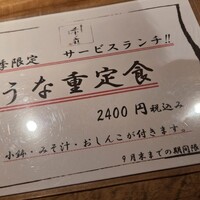 季限定 サービスランチ!!
うな重定食
2400円税込み
小鉢・みそ汁・おしんこが付きます。
9月末までの期間限